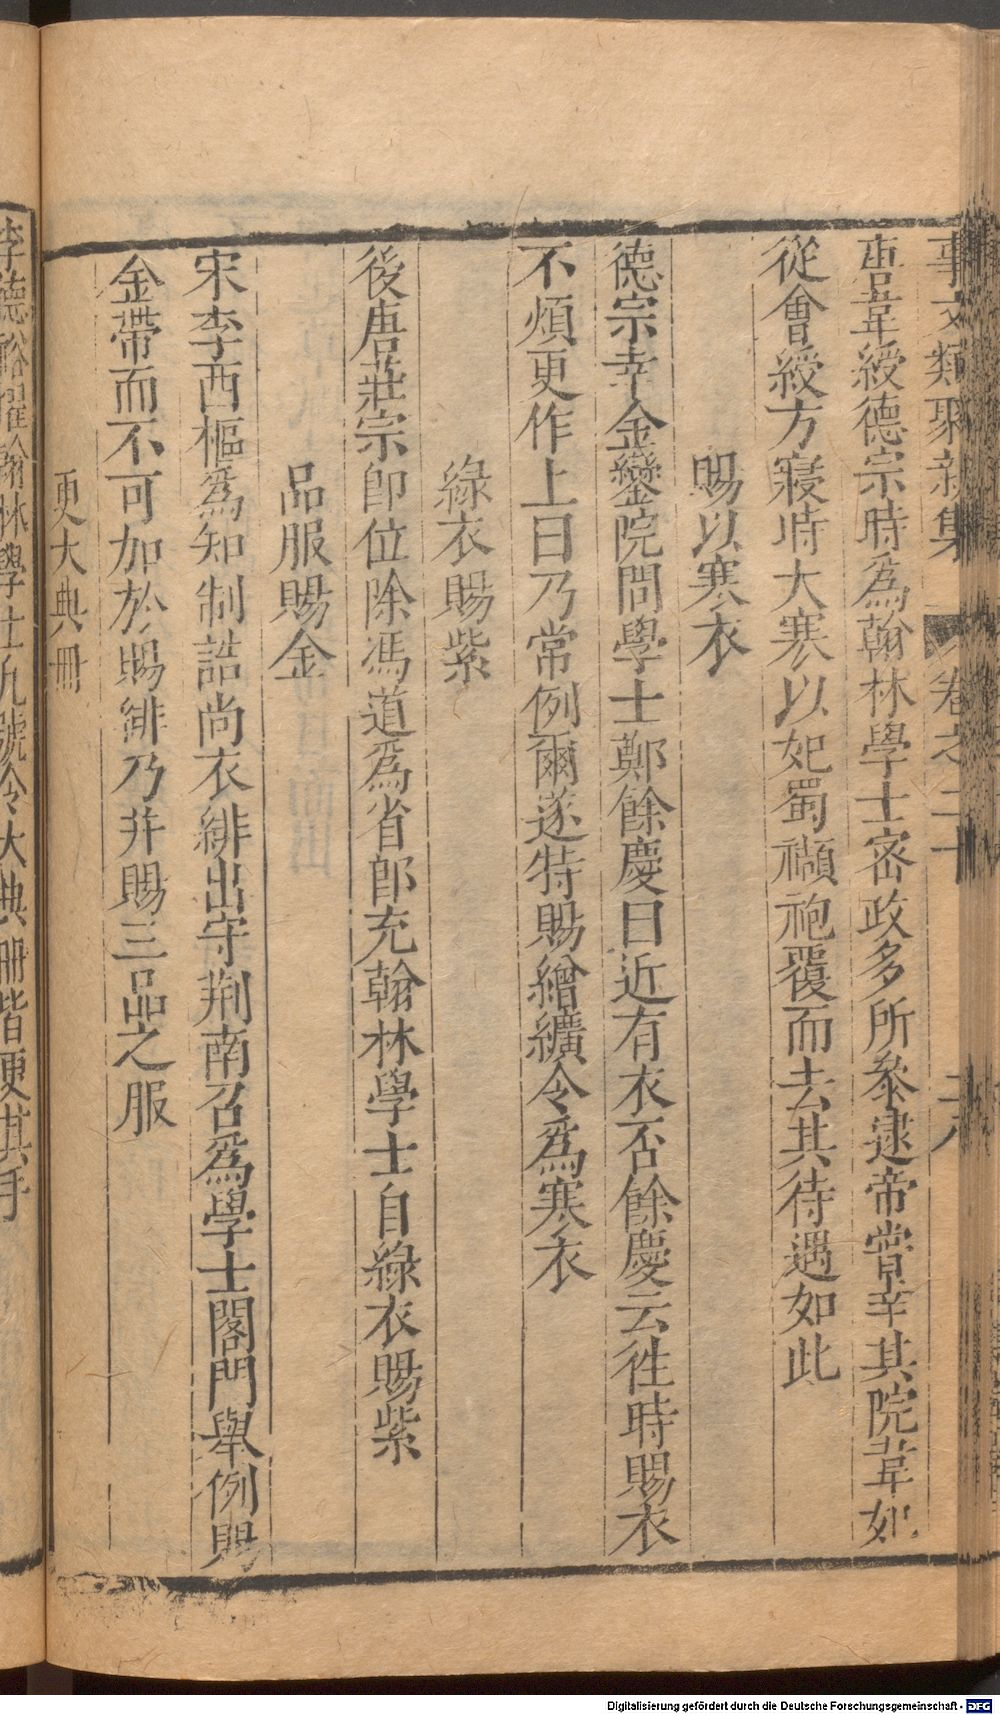 事文類聚新集 卷之二十 二八
唐韋綬德宗時爲翰林學士密政多所叅逮帝嘗幸其院韋妃
從會綬方寢時大寒以妃蜀襭袍覆而去其待遇如此
賜以寒衣
德宗幸金鑾院問學士鄭餘慶曰近有衣否餘慶云徃時賜衣
不煩更作上曰乃常例爾遂特賜繒纊令爲寒衣
綠衣賜紫
後唐莊宗卽位除馮道爲省郎充翰林學士自綠衣賜紫
品服賜金
宋李西樞爲知制誥尚衣緋出守荆南召爲學士閣門舉例賜
金帶而不可加於賜緋乃并賜三品之服
更大典冊
李德裕擢翰林學士凢號令大典冊皆更其手
Digitalisierung gefördert durch die Deutsche Forschungsgemeinschaft - DFG